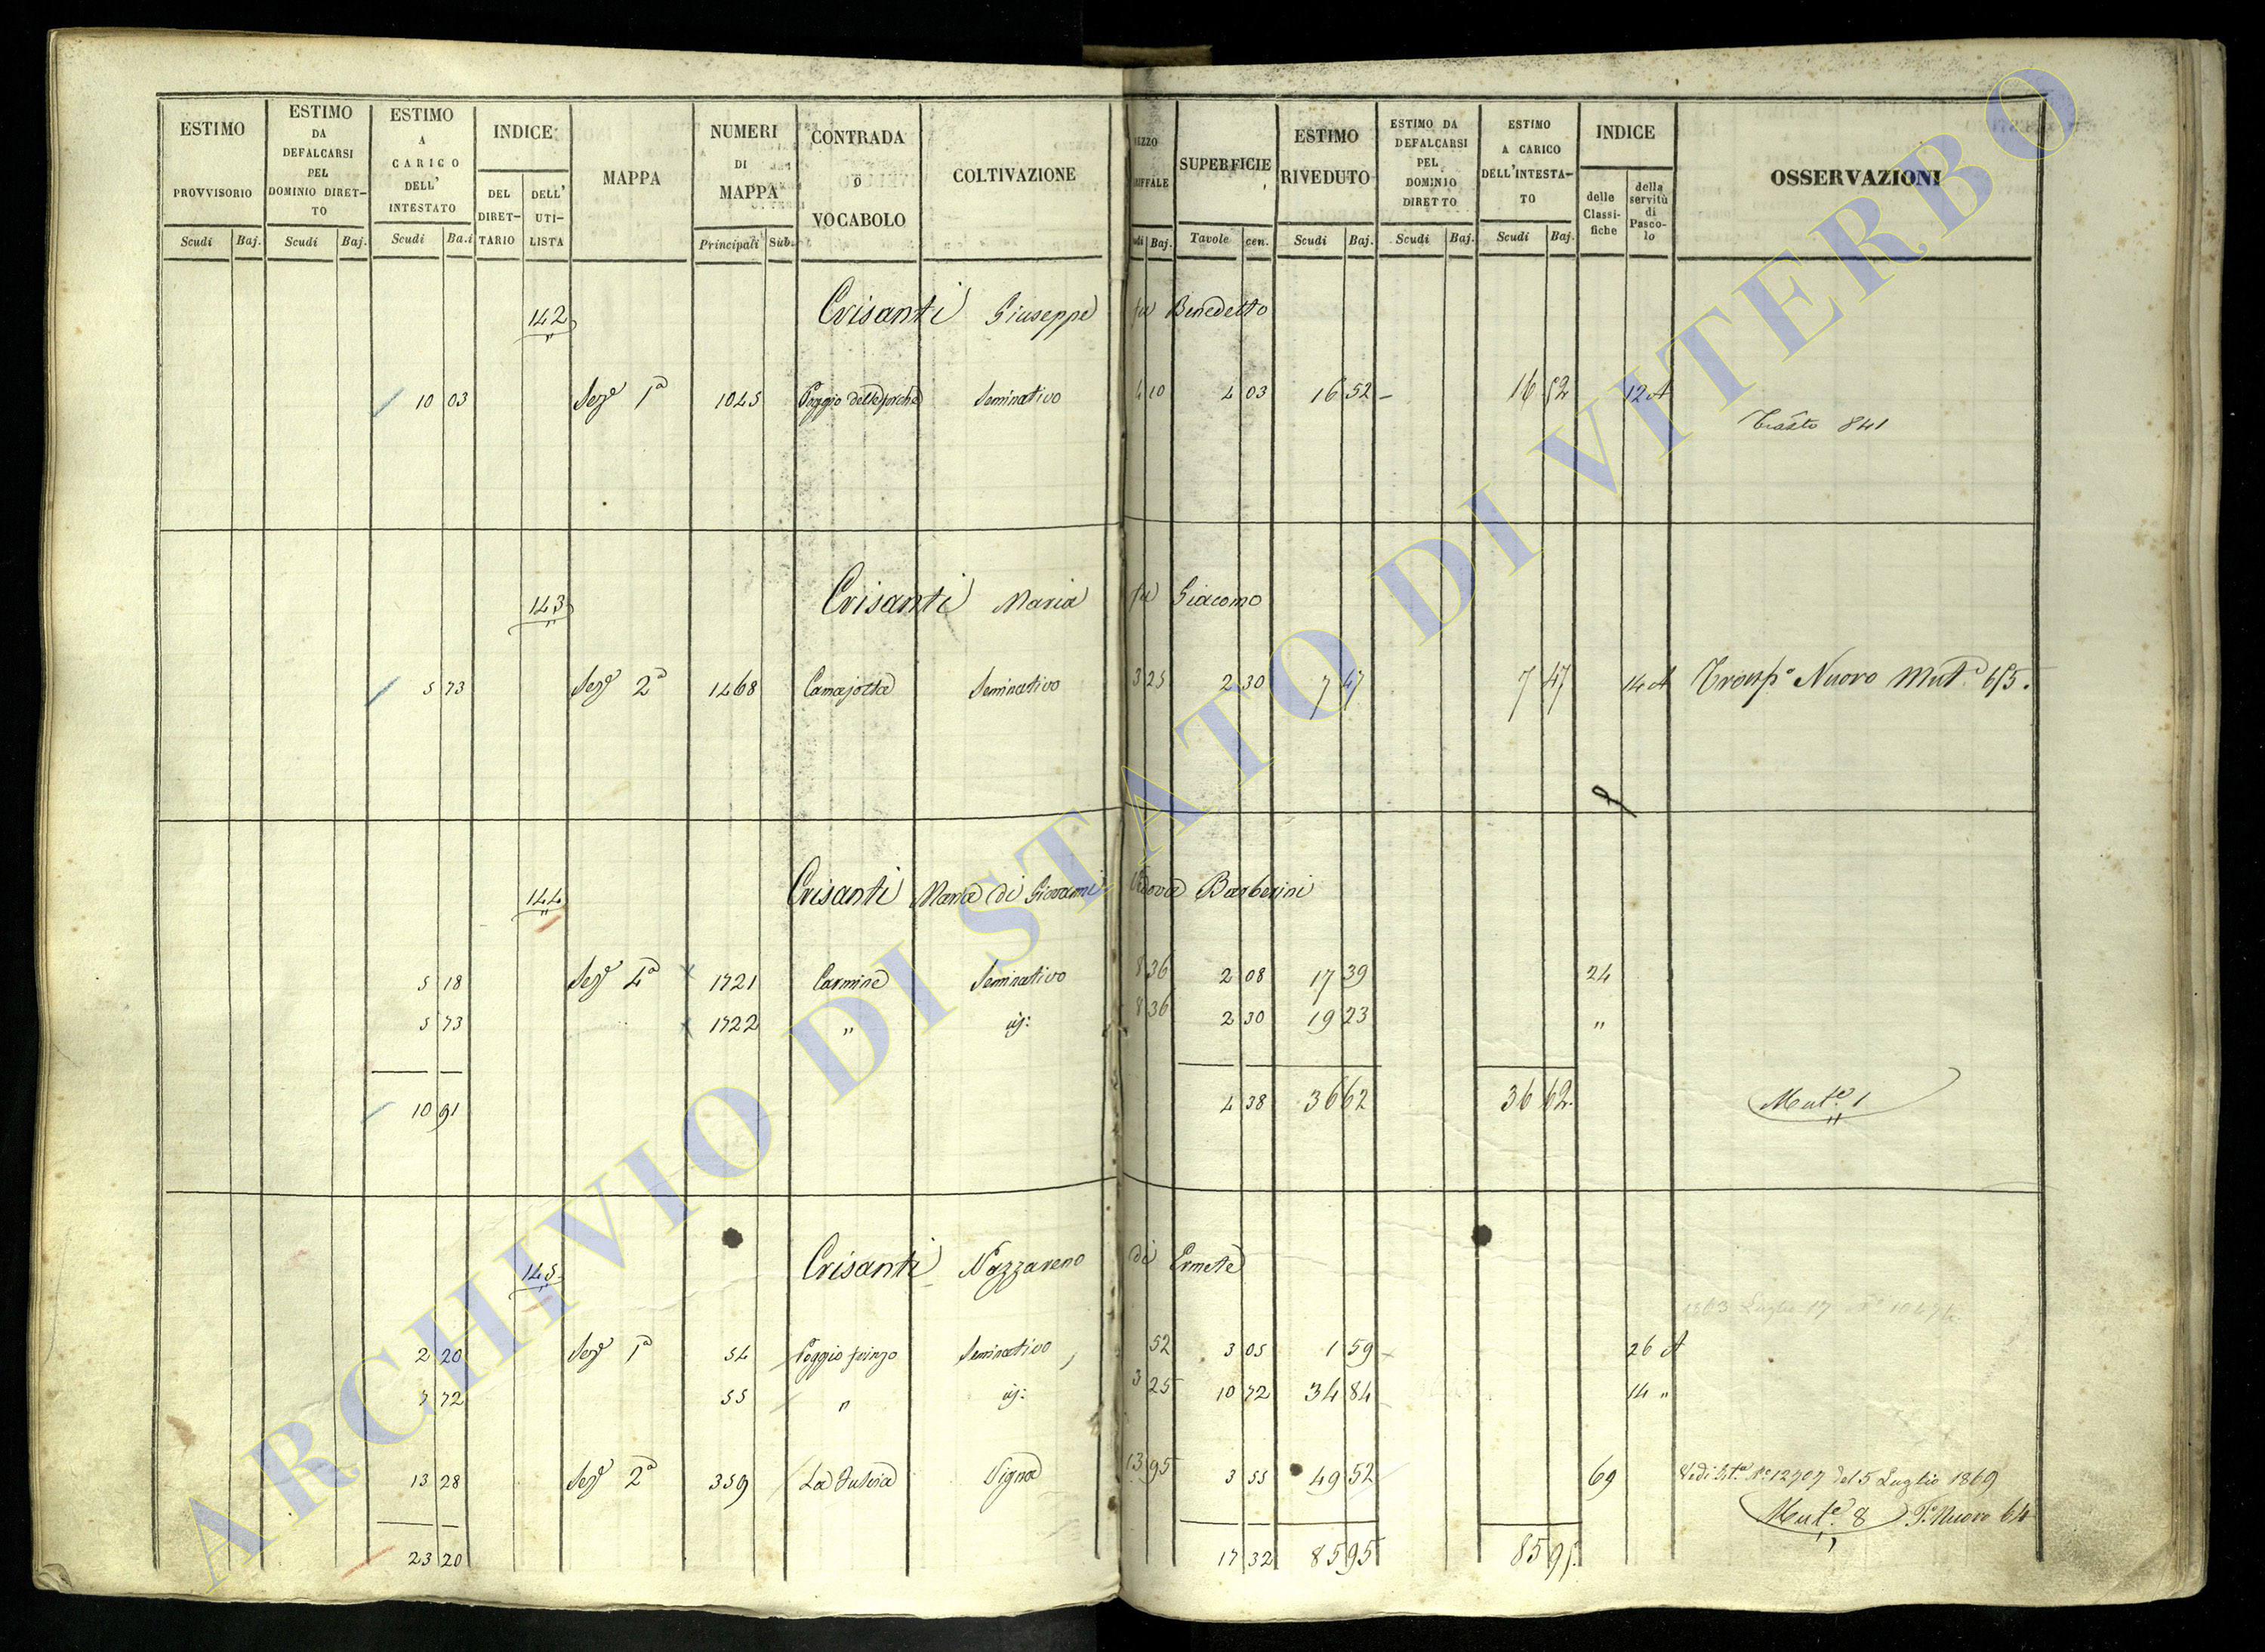 ESTIMO PROVVISORIO
Scudi Baj.
ESTIMO DA DEFALCARSI PEL DOMINIO DIRET-TO
Scudi Baj.
ESTIMO A CARICO DELL' INTESTATO
Scudi Ba.i
INDICE
DEL DIRET-TARIO
DELL' UTI-LISTA
MAPPA
NUMERI DI MAPPA
Principali Sub.
CONTRADA O VOCABOLO
COLTIVAZIONE
EZZO
IFFALE
di Baj.
SUPERFICIE
Tavole cen.
ESTIMO RIVEDUTO
Scudi Baj.
ESTIMO DA DEFALCARSI PEL DOMINIO DIRETTO
Scudi Baj.
ESTIMO A CARICO DELL'INTESTA-TO
Scudi Baj.
INDICE
delle Classi-fiche
della servitù di Pasco-lo
OSSERVAZIONI
142 Crisanti Giuseppe fu Benedetto
10 03 Sezе 1a 1045 Poggio delle forche Seminativo 4 10 4 03 16 52 16 52 12 A
841
143 Crisanti Maria fu Giacomo
5 73 Seze 2a 1468 Camajotta Seminativo 3 25 2 30 7 47 7 47 14 A Trasp.o Nuovo Mut.e 615.
144 Crisanti Maria di Giovanni Vedova Barberini
5 18 Seze 4a 1721 Carmine Seminativo 8 36 2 08 17 39 24
5 73 1722 " 8 36 2 30 19 23 "
10 91 4 38 36 62 36 62. Mut.e 1
145. Crisanti Nazzareno di Ermete
1863 Luglio 17
2 20 Seze 1a 54 Poggio Seminativo 52 3 05 1 59 26 A
7 72 55 " 3 25 10 72 34 84 14 "
13 28 Seze 2a 359 Vigna 13 95 3 55 49 52 69 Vedi N.o 12707 del 5 Luglio 1869
Mut.e 8 P.o Nuovo 64
23 20 17 32 85 95 85 95.
ARCHIVIO DI STATO DI VITERBO